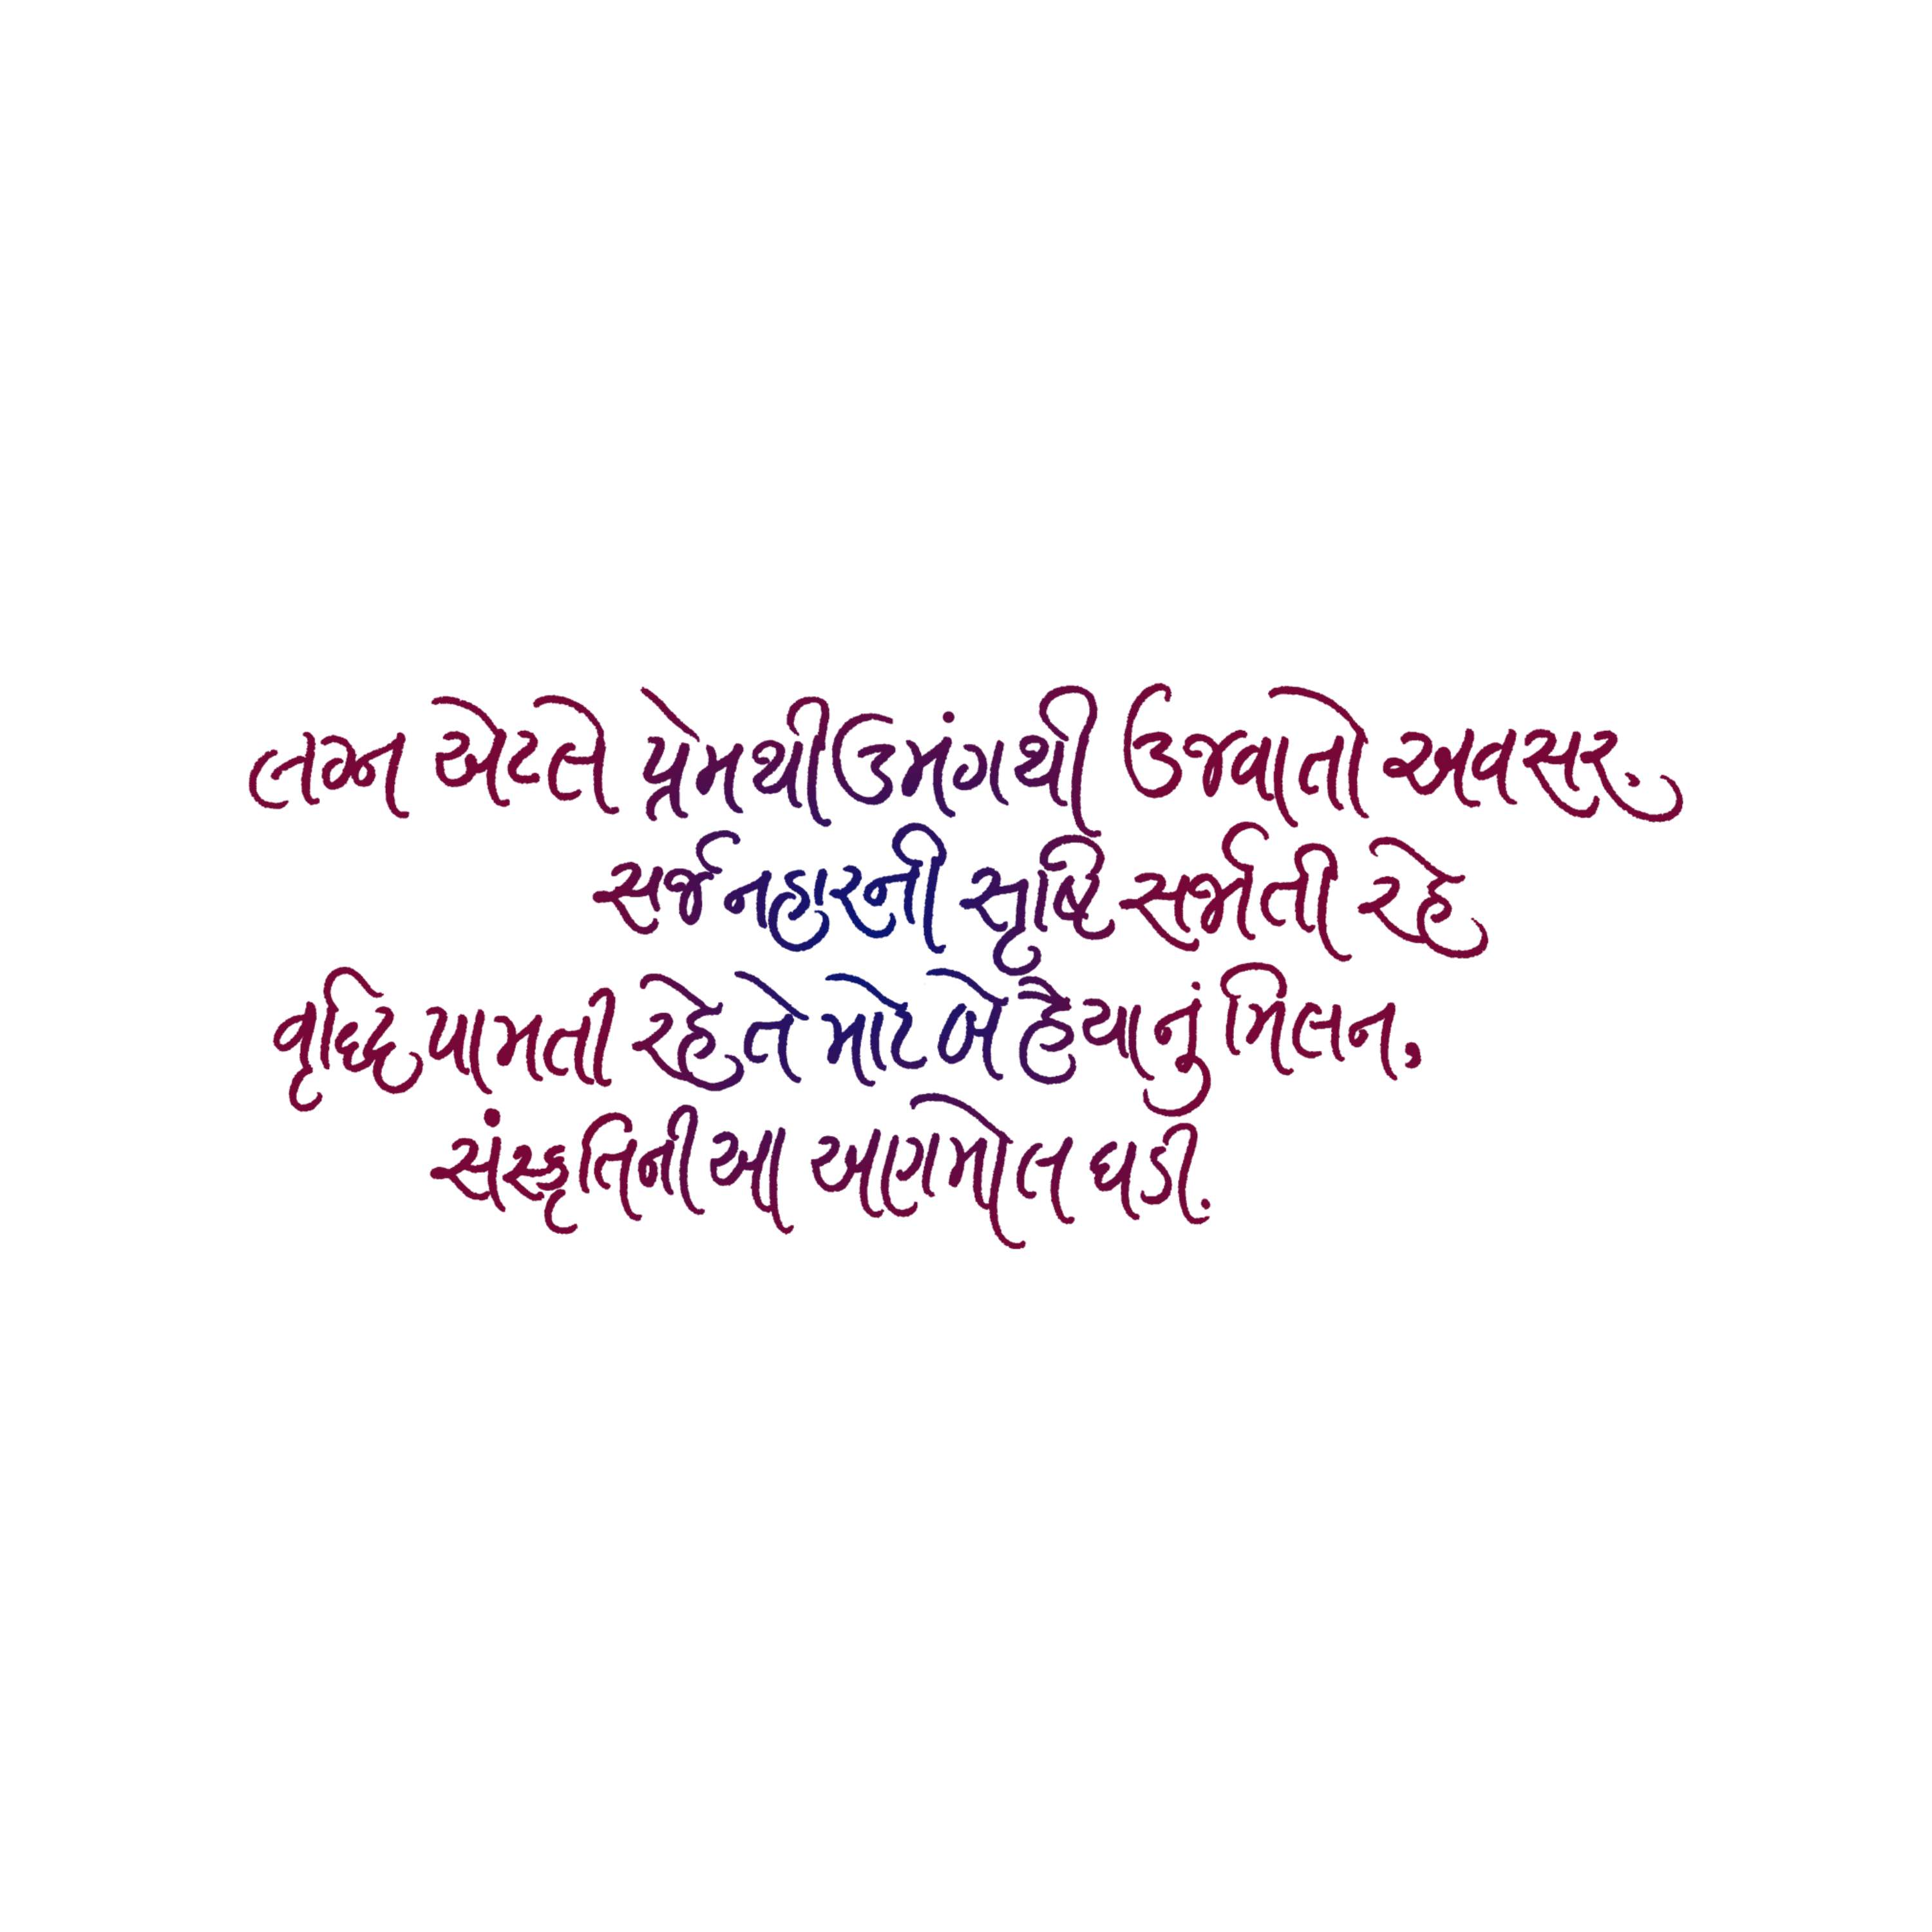 લગ્ન એટલે પ્રેમથી ઉમંગથી ઉજવાતો અવસર.
સર્જનહારની સૃષ્ટિ સર્જાતી રહે
વૃદ્ધિ પામતી રહે તે માટે બે હૈયાનું મિલન,
સંસ્કૃતિની આ અણમોલ ઘડી.